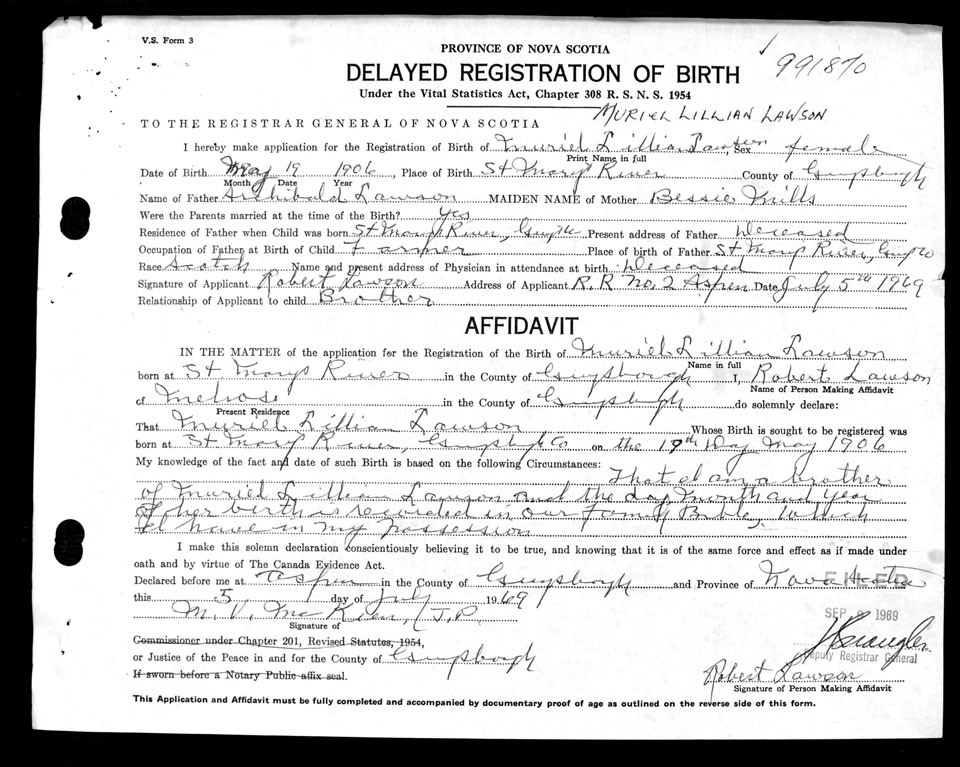 V.S. Form 3
991870
PROVINCE OF NOVA SCOTIA
DELAYED REGISTRATION OF BIRTH
Under the Vital Statistics Act, Chapter 308 R. S. N. S. 1954
MURIEL LILLIAN LAWSON
TO THE REGISTRAR GENERAL OF NOVA SCOTIA
I hereby make application for the Registration of Birth of Muriel Lillian Lawson, Sex female
Print Name in full
Date of Birth May 19 1906, Place of Birth St Marys River County of Guysborough
Month Date Year
Name of Father Archibald Lawson MAIDEN NAME of Mother Bessie Mills
Were the Parents married at the time of the Birth? Yes
Residence of Father when Child was born St Marys River, Present address of Father Deceased
Occupation of Father at Birth of Child Farmer Place of birth of Father St Marys River,
Race Scotch Name and present address of Physician in attendance at birth Deceased
Signature of Applicant Robert Lawson Address of Applicant R.R No. 2 Aspen Date July 5th 1969
Relationship of Applicant to child Brother
AFFIDAVIT
IN THE MATTER of the application for the Registration of the Birth of Muriel Lillian Lawson
Name in full
born at St Marys River in the County of Guysborough I, Robert Lawson
Name of Person Making Affidavit
of Melrose in the County of Guysborough do solemnly declare:
Present Residence
That Muriel Lillian Lawson Whose Birth is sought to be registered was
born at St Marys River, Co on the 19th Day May 1906
My knowledge of the fact and date of such Birth is based on the following Circumstances: That I am a brother
of Muriel Lillian Lawson and the day, month and year
of her birth is recorded in our Family Bible, which
I have in my possession
I make this solemn declaration conscientiously believing it to be true, and knowing that it is of the same force and effect as if made under
oath and by virtue of The Canada Evidence Act.
Declared before me at Aspen in the County of Guysborough and Province of Nova Scotia
FILED
this 5 day of July 1969
SEP 1969
M. V. J.P.
Signature of
Commissioner under Chapter 201, Revised Statutes, 1954,
Deputy Registrar General
or Justice of the Peace in and for the County of Guysborough
Robert Lawson
If sworn before a Notary Public affix seal.
Signature of Person Making Affidavit
This Application and Affidavit must be fully completed and accompanied by documentary proof of age as outlined on the reverse side of this form.